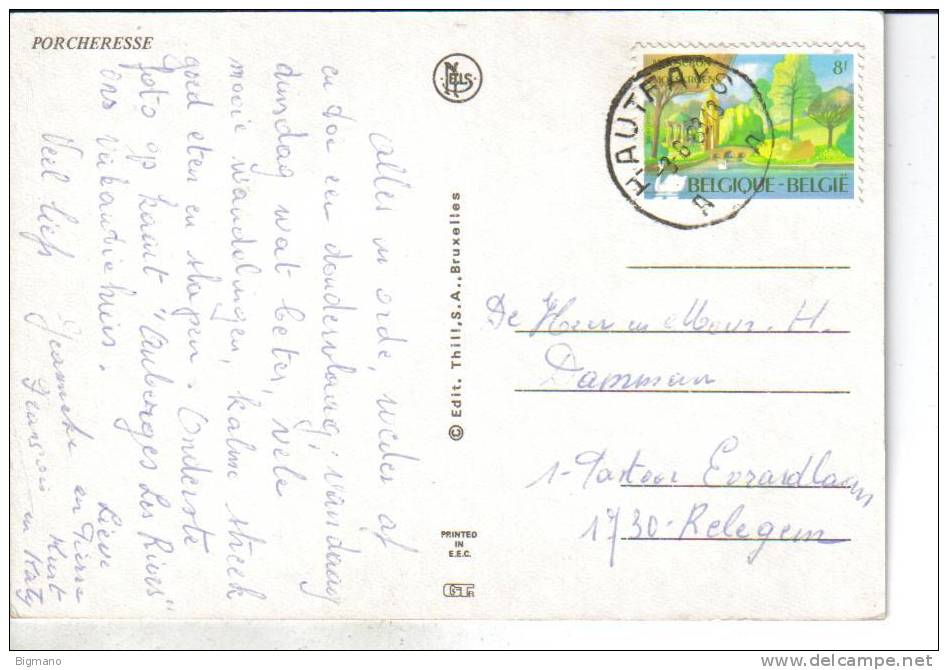 PORCHERESSE
NELS
MOUSCRON
MOESKROEN
8f
HAUTFAYS
A A
BELGIQUE-BELGIË
Alles in orde, weder af
en toe een donderslang, vandaag
dinsdag wat beter, vele
mooie wandelingen, kalme streek
goed eten en slapen. Onderste
foto op kaart "Auberges Les Rives"
ons vakantiehuis.
Veel liefs
Jeanneke en Pierre
Lieve Kurt
François en Katy
© Edit. Thill, S.A., Bruxelles
PRINTED
IN
E.E.C.
De Heer en Mevr. H.
Damman
1-Pastoor Evrardlaan
1730-Relegem
Bigmano
delcampe.net